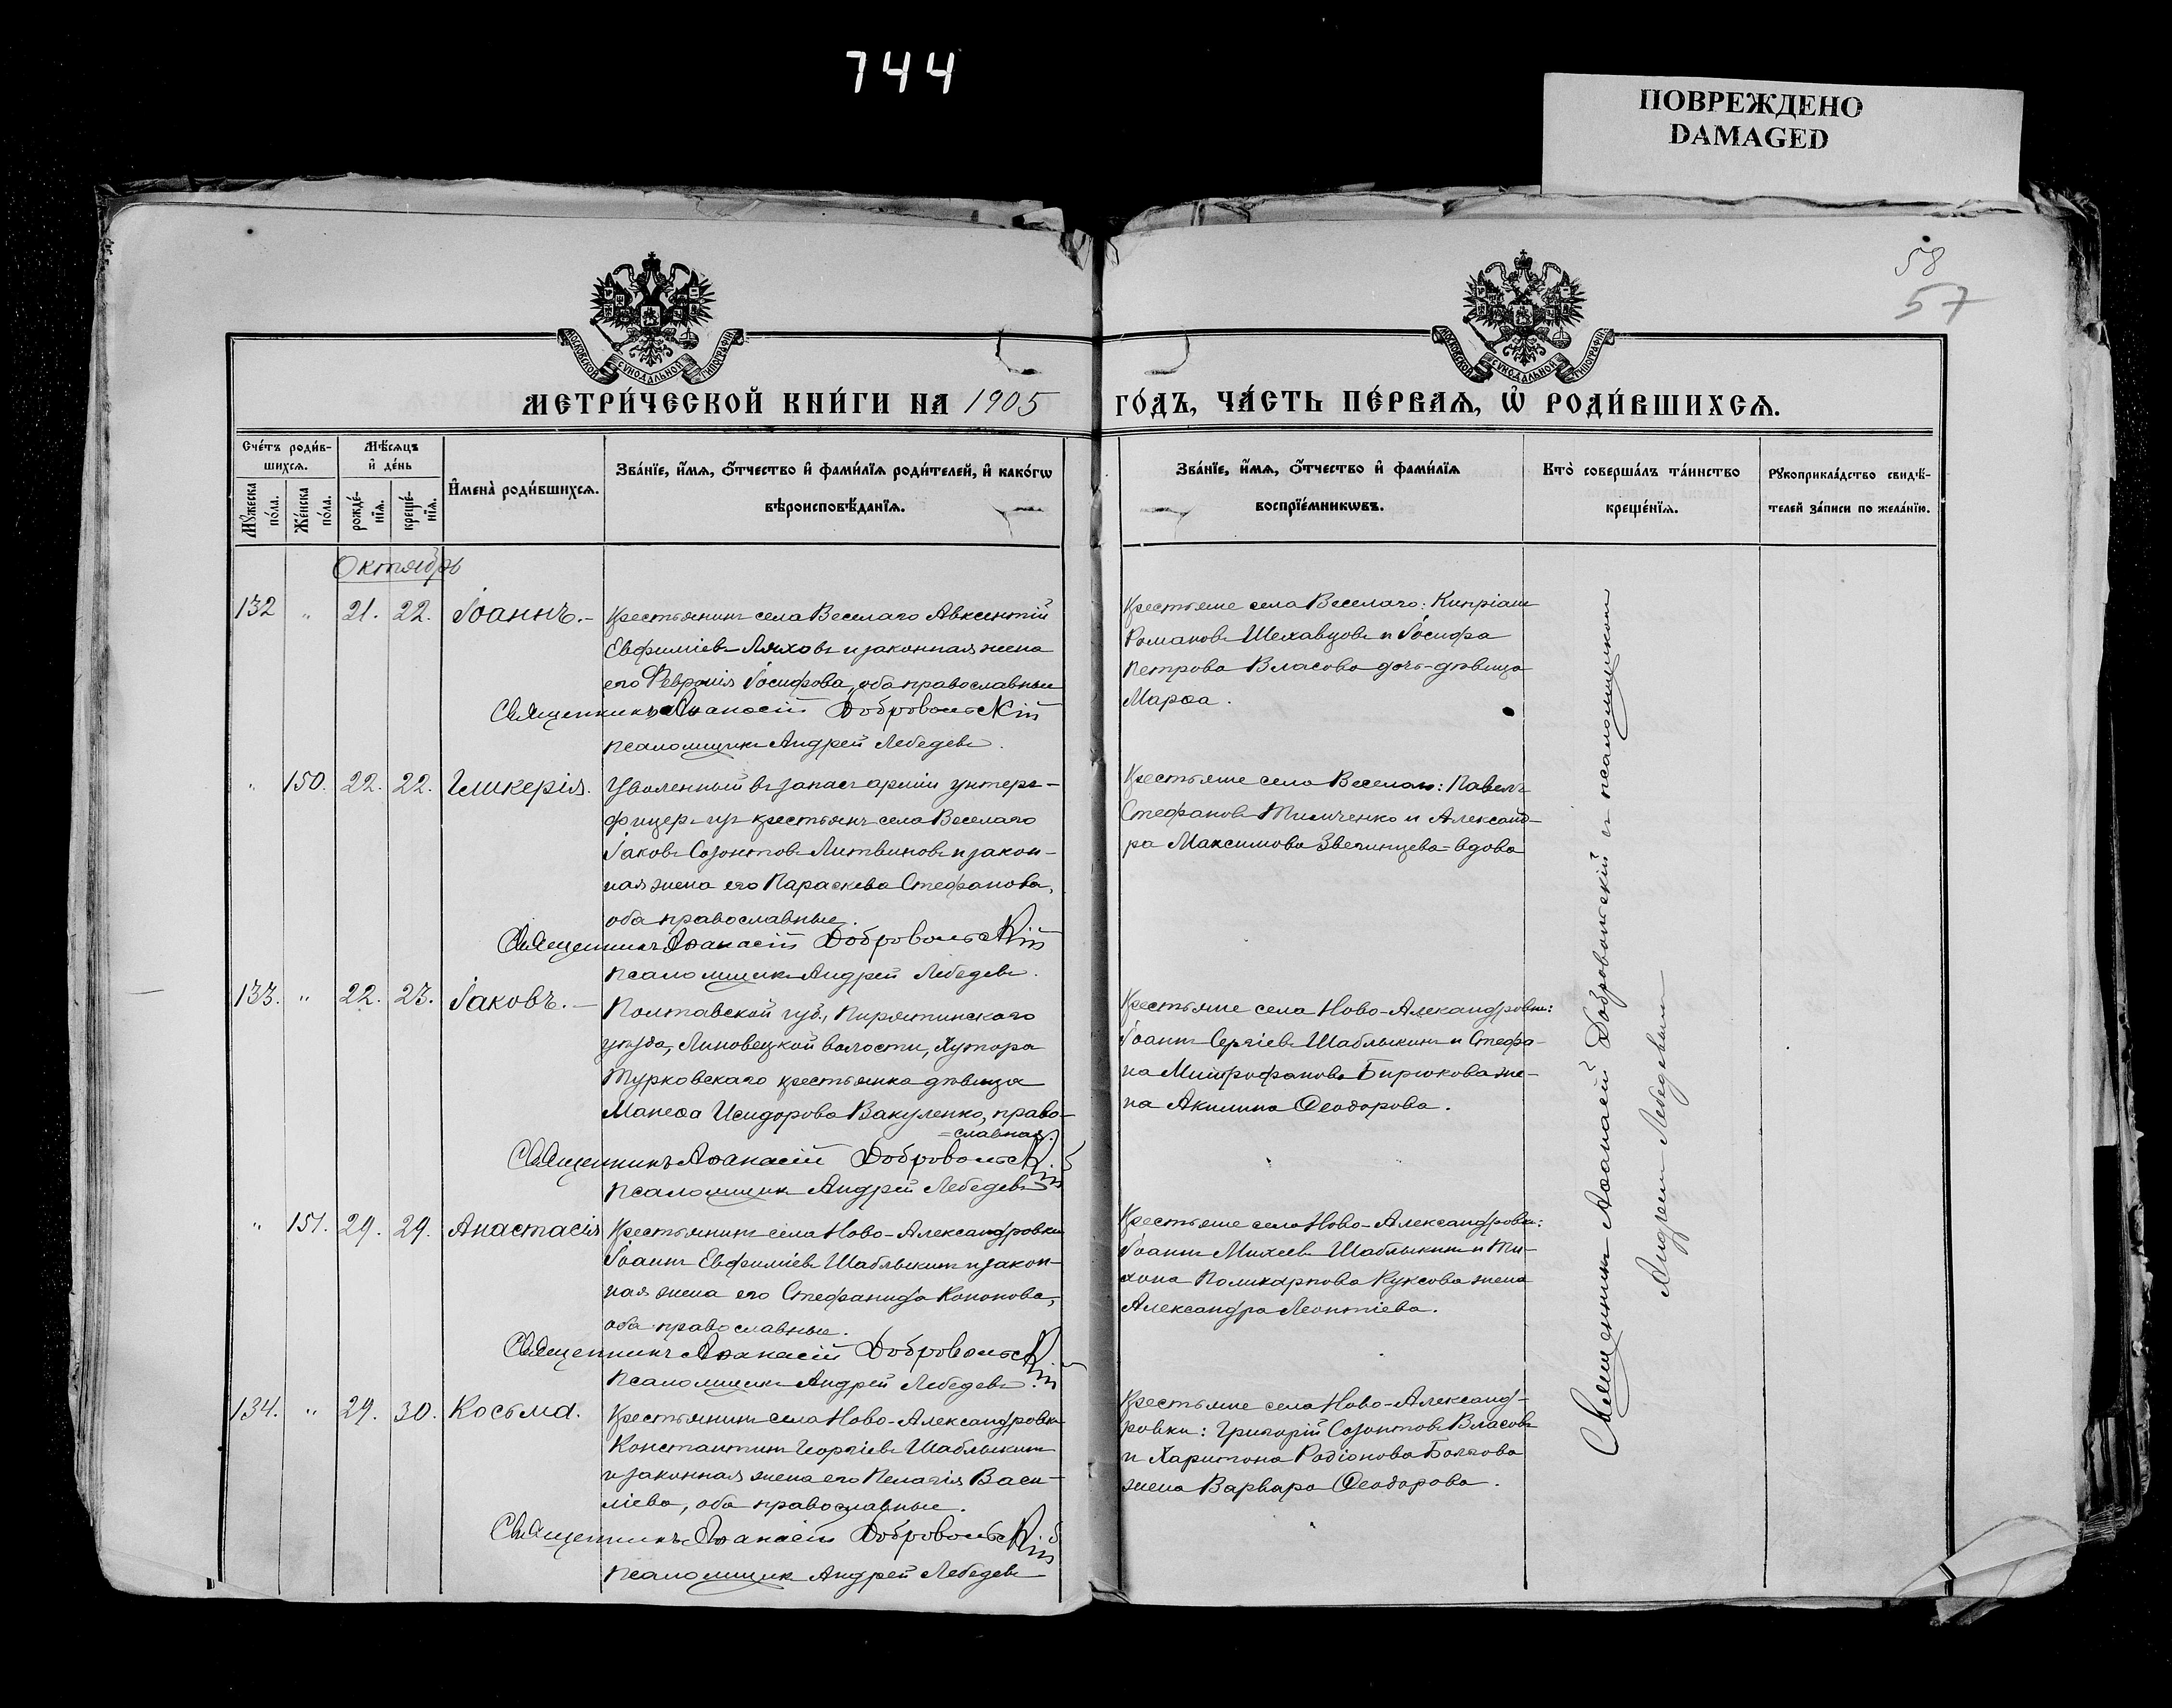 744
ПОВРЕЖДЕНО
DAMAGED
58
57
МОСКОВСКОЙ СѴНОДАЛЬНОЙ ТИПОГРАФІИ
МОСКОВСКОЙ СѴНОДАЛЬНОЙ ТИПОГРАФІИ
МЕТРИ́ЧЕСКОЙ КНИ́ГИ НА 1905
ГО́ДЪ, ЧА́СТЬ ПЕ́РВАѦ, Ѡ҆ РОДИ́ВШИХСѦ.
Сче́тъ роди́в-
шихсѧ.
Мѣ́сѧцъ
и҆ де́нь
Мꙋ́жеска
по́ла.
Же́нска
по́ла.
рожде́-
нїѧ.
креще́-
нїѧ.
И҆мена̀ роди́вшихсѧ.
Зва́нїе, и҆́мѧ, ѻ҆́тчество и҆ фами́лїѧ роди́телей, и҆ како́гѡ
вѣроисповѣ́данїѧ.
Зва́нїе, и҆́мѧ, ѻ҆́тчество и҆ фами́лїѧ
воспрїе́мникѡвъ.
Кто̀ соверша́лъ та́инство
креще́нїѧ.
Рꙋкоприкла́дство свидѣ́-
телей за́писи по жела́нїю.
Октябрь
132 " 21. 22. Іоаннъ.-
Крестьянинъ села Веселаго Авксентій
Евфиміевъ Ляховъ и законная жена
его Февронія Іосифова, оба православные
Священникъ Аѳанасій Добровольскій
Псаломщикъ Андрей Лебедевъ.
Крестьяне села Веселаго: Кипріанъ
Романовъ Шехавцовъ и Іосифа
Петрова Власова дочь-дѣвица
Марѳа.
" 150. 22. 22. Гликерія.
Уволенный въ запасъ арміи унтеръ-
фицеръ изъ крестьянъ села Веселаго
Іаковъ Созонтовъ Литвиновъ и закон-
ная жена его Параскева Стефанова,
оба православные.
Священникъ Аѳанасій Добровольскій
Псаломщикъ Андрей Лебедевъ.
Крестьяне села Веселаго: Павелъ
Стефановъ Тимченко и Александ-
ра Максимова Звегинцева-вдова
133. " 22. 23. Іаковъ.-
Полтавской губ., Пирятинскаго
уѣзда, Линовецкой волости, Хутора
Турковскаго крестьянка дѣвица
Манеѳа Исидорова Вакуленко, право-
=славная.
Священникъ Аѳанасій Добровольскій
Псаломщикъ Андрей Лебедевъ
Крестьяне села Ново-Александровки:
Іоаннъ Сергіевъ Шаблыкинъ и Стефа-
на Митрофанова Бирюкова же-
на Акилина Ѳеодорова.
" 151. 29. 29. Анастасія
Крестьянинъ села Ново-Александровки
Іоаннъ Евфиміевъ Шаблыкинъ и закон-
ная жена его Стефанида Кононова,
оба православные.
Священникъ Аѳанасій Добровольскій
Псаломщикъ Андрей Лебедевъ.
Крестьяне села Ново-Александровки:
Іоаннъ Михеевъ Шаблыкинъ и Ти-
хона Поликарпова Куксова жена
Александра Леонтіева.
134. " 29. 30. Косьма.
Крестьянинъ села Ново-Александровки
Константинъ Георгіевъ Шаблыкинъ
и законная жена его Пелагія Васи-
ліева, оба православные.
Священникъ Аѳанасій Добровольскій
Псаломщикъ Андрей Лебедевъ
Крестьяне села Ново-Александ-
ровки: Григорій Созонтовъ Власовъ
и Харитона Родіонова Болгова
жена Варвара Ѳеодорова.
Священникъ Аѳанасій Добровольскій съ псаломщикомъ
Андреемъ Лебедевымъ